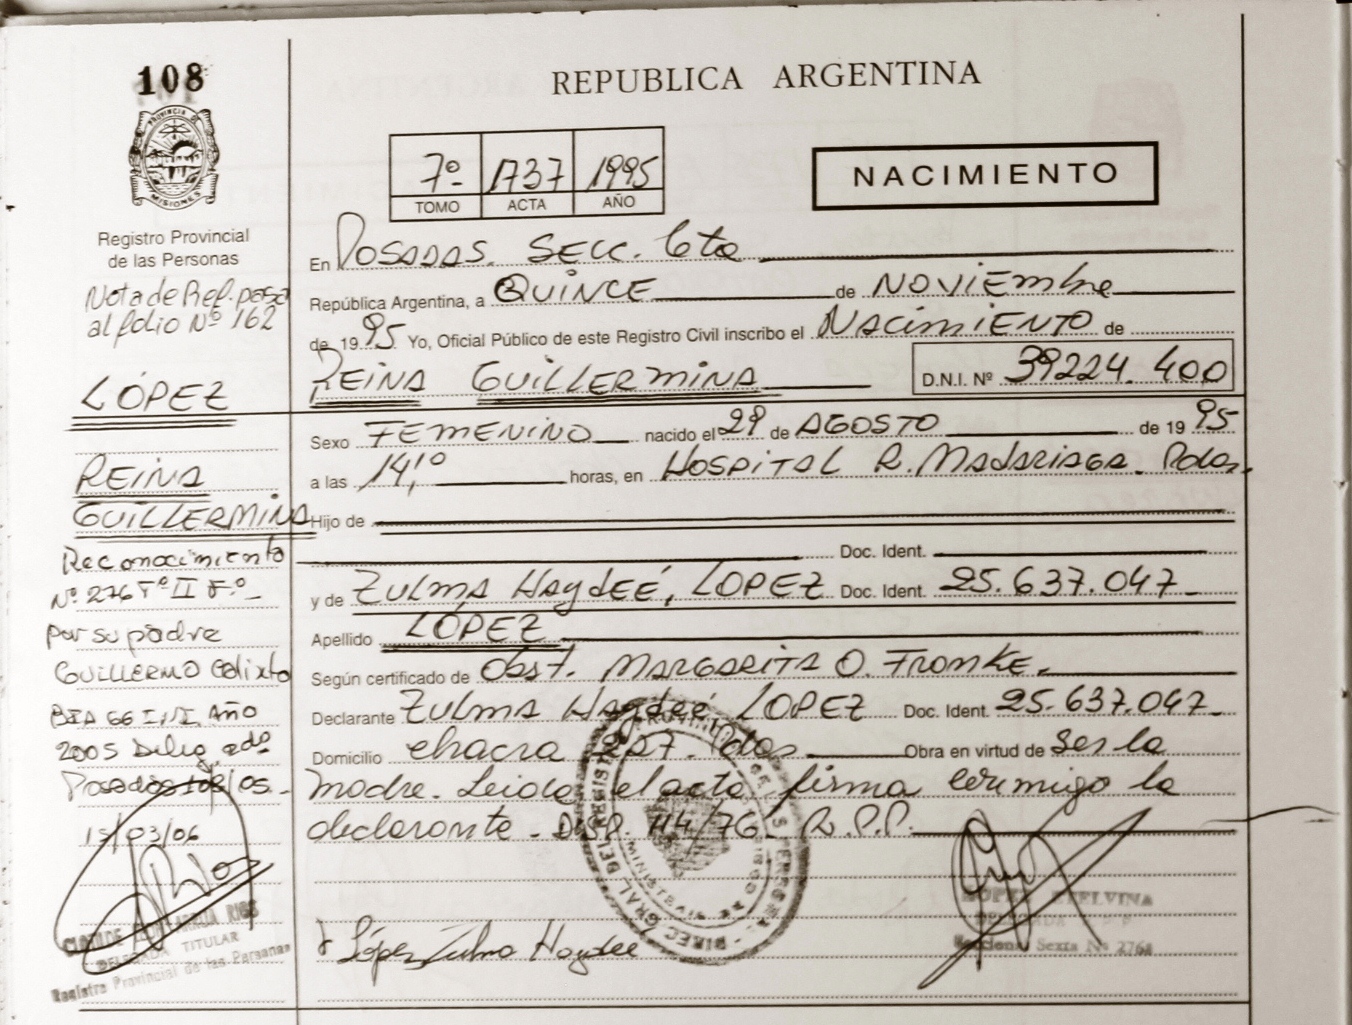 108
REPUBLICA ARGENTINA
PROVINCIA DE MISIONES
7º 1737 1995
TOMO ACTA AÑO
NACIMIENTO
Registro Provincial
de las Personas
Nota de Ref. pasa
al folio Nº 162
LÓPEZ
REINA
GUILLERMINA
Reconocimiento
Nº 276 Tº II Fº
por su padre
GUILLERMO Calixto
Año
2005
Posadas
15/03/06
DELEGADA TITULAR
Registro Provincial de las Personas
En POSADAS. SECC. 6ta
República Argentina, a QUINCE de NOVIEMbre
de 1995 Yo, Oficial Público de este Registro Civil inscribo el NACIMIENTO de
REINA GUILLERMINA D.N.I. Nº 39224.400
Sexo FEMENINO nacido el 29 de AGOSTO de 1995
a las 14,10 horas, en HOSPITAL R. MADARIAGA. Pdas.
Hijo de
Doc. Ident.
y de ZULMA HAYdEÉ, LOPEZ Doc. Ident. 25.637.047
Apellido LÓPEZ
Según certificado de Obst. MARGARITA O. FROMKE.
Declarante ZULMA HAYdEÉ LOPEZ Doc. Ident. 25.637.047
Domicilio chacra Obra en virtud de Ser la
madre. Leida el acta firma conmigo la
declarante - DISP. 114/76 - R.P.P.
López Zulma Haydee
LOPEZ ETELVINA
DELEGADA
Seccional Sexta Nº 2764